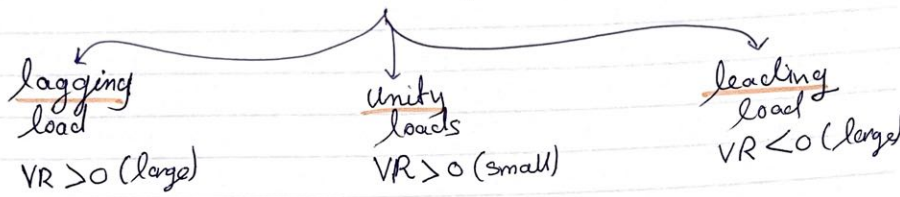 lagging
load
VR >0 (large)
unity
loads
VR >0 (small)
leading
load
VR <0 (large)